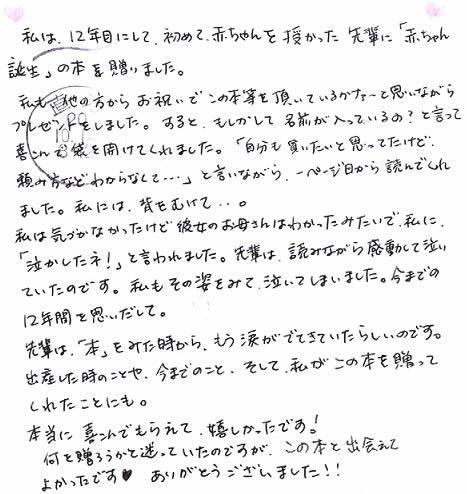 私は、12年目にして、初めて、赤ちゃんを授かった先輩に「赤ちゃん
誕生」の本を贈りました。
私も他の方からお祝いでこの本等を頂いているかなァ~と思いながら
プレゼントをしました。すると、もしかして名前が入っているの?と言って
喜こんで袋を開けてくれました。「自分も買いたいと思ってたけど、
頼み方などわからなくて…」と言いながら、一ページ目から読んでくれ
ました。私には、背をむけて…。
私は気づかなかったけど彼女のお母さんはわかったみたいで、私に、
「泣かしたネ!」と言われました。先輩は、読みながら感動して泣い
ていたのです。私もその姿をみて、泣いてしまいました。今までの
12年間を思いだして。
先輩は、「本」をみた時から、もう涙がでてきていたらしいのです。
出産した時のことや、今までのこと、そして、私がこの本を贈って
くれたことにも。
本当に喜こんでもらえて、嬉しかったです!
何を贈ろうかと迷っていたのですが、この本と出会えて
よかったです♥ ありがとうございました!!